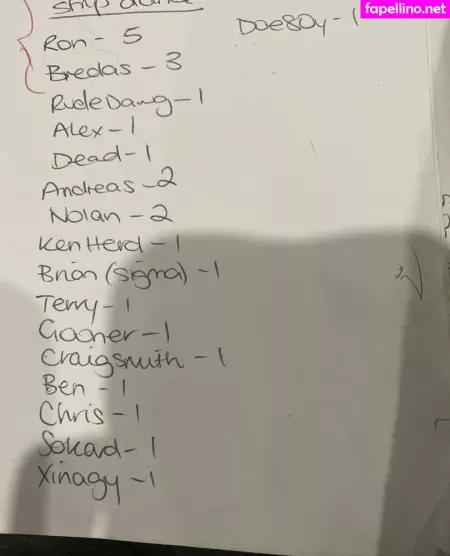 fapellino.net
strip dance
Doe80y - 1
Ron - 5
Bredas - 3
RudeDawg - 1
Alex - 1
Dead - 1
Andreas - 2
Nolan - 2
KenHerd - 1
Brian (sigma) - 1
Terry - 1
Gooner - 1
Craigsmith - 1
Ben - 1
Chris - 1
Sokad - 1
Xinagy - 1